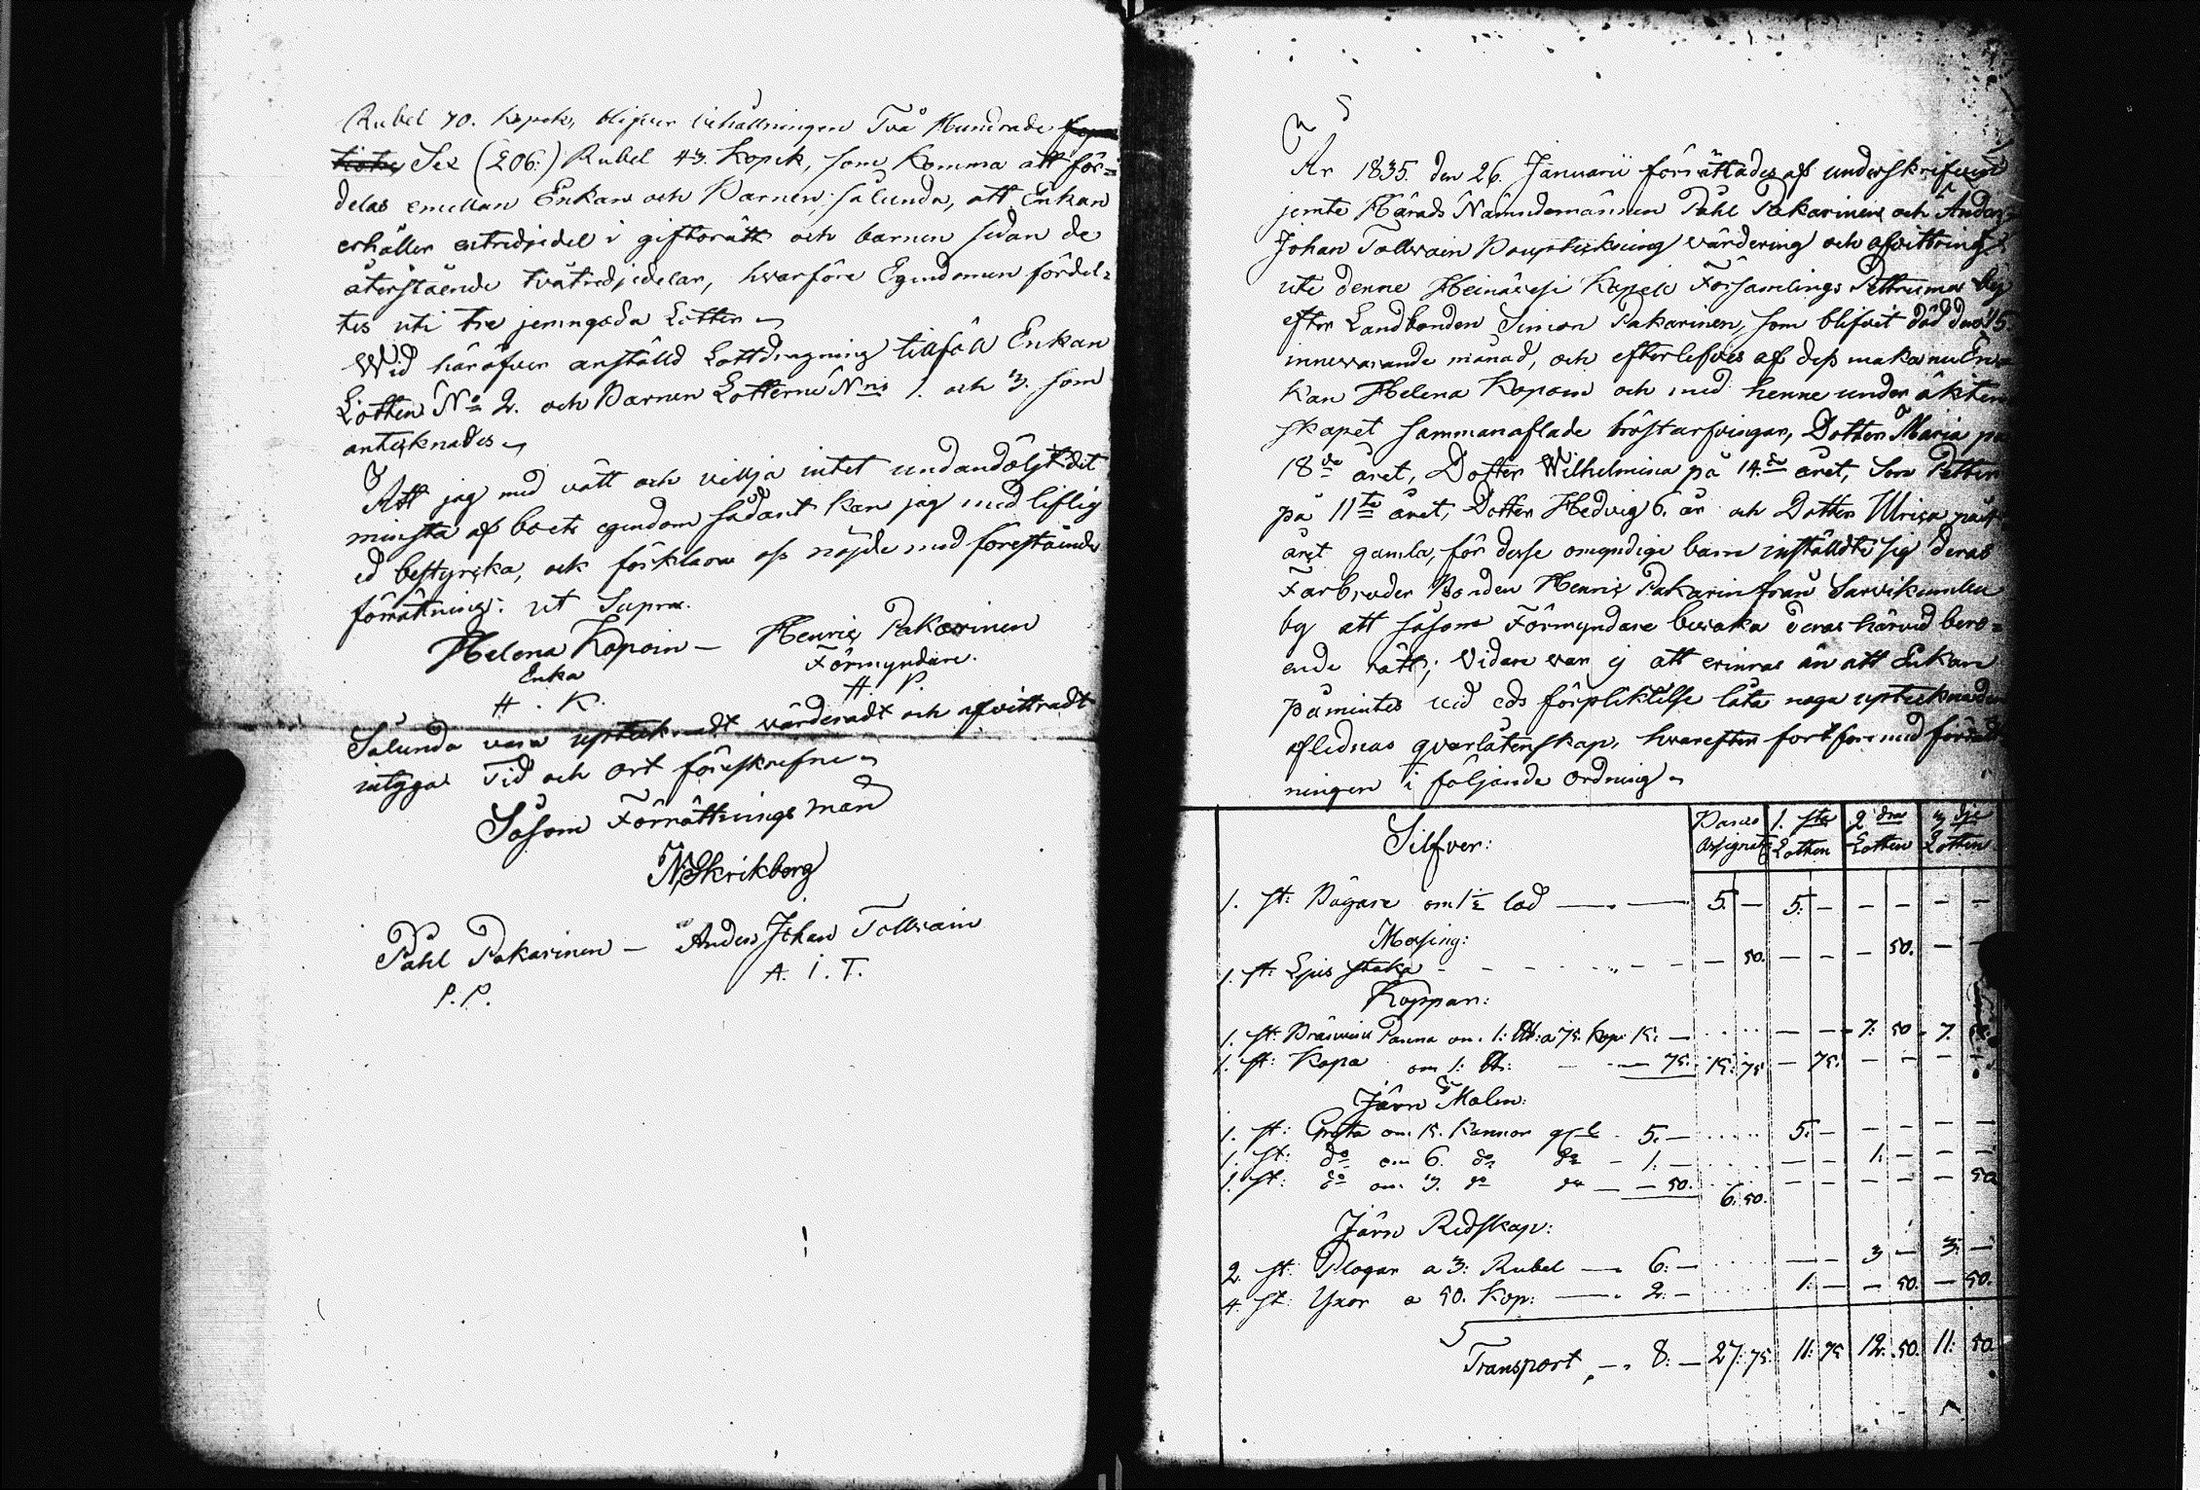 Rubel 70. Kopek, blifver behållningen Två Hundrade
Sex (206:) Rubel 43. Kopek, som komma att för=
delas emellan Enkan och Barnen, sålunda, att Enkan
erhåller entredjedel i giftorätt och barnen sedan de
återstående tvåtredjedelar, hvarföre Egendomen fördel=
tes uti tre jemngoda Lotter
Wid häröfver anställd Lottdragning tillföll Enkan
Lotten No 2. och Barnen Lotterne Nris 1. och 3. som
antecknades
Att jag med vett och vilja intet undandöljt det
minsta af boets egendom sådant kan jag med liflig
ed bestyrcka, och förklara oss nöjde med förestående
förrättning: ut Supra.
Helena Kopoin — Henric Pakarinen
Enka Förmyndare.
H. K. H. P.
Sålunda vara uptecknadt värderadt och afvittradt
intyga Tid och ort föreskrefne
Såsom Förrättnings man
N Skrikberg
Påhl Pakarinen — Anders Johan Tollvain
P. P. A. I. T.
År 1835. den 26. Januarii förrättades af underskrifven
jemte Härads Nämndemännen Påhl Pakarinen och Anders
Johan Tollvain Bouptekning värdering och afvittring
uti denne Heinävesi Kapell Församlings Petruma by
efter Landbonden Simon Pakarinen, som blifvit död den 15
innevarande månad, och efterlefves af dess maka nu En=
kan Helena Kopoin och med henne under äkten
skapet sammanaflade bröstarfvingar, Dotter Maria på
18de året, Dotter Wilhelmina på 14:de året, Son Petter
på 11te året, Dotter Hedvig 6. år och Dotter Ulrica på
året gamla, för desse omyndige barn instälde sig deras
Farbroder Bonden Henric Pakarin från Sarvikumbu
by att såsom Förmyndare bevaka deras härvid bero=
ende rätt; Vidare var ej att erinras än att Enkan
påmintes vid eds förpliktelse låta noga uptekna den
aflednas qvarlåtenskap, hvarefter fortfors med förrätt
ningen i följande ordning
Silfver: Banco Assignat: 1. sta Lotten 2 dra Lotten 3 dje Lotten
1. st: Bägare om 1½ lod — 5. — 5: — — — — —
Messing:
1. st: Ljus staka — — 50. — — — 50. — —
Koppar:
1. st: Bränvins Panna om 1: ℔: a 75. Kop: 15: — — — 7: 50 7. 50
1. st: Kopa om 1: ℔: — 75. 15: 75 — 75. — — — —
Järn Malm:
1. st: Gryta om 15. Kannor 5. — 5: — — — — —
1. st: do om 6. do do — 1: — — — 1: — — —
1. st: do om 3. do do — 50. 6: 50. — — — — — 50
Järn Redskap:
2. st: Plogar a 3: Rubel — 6: — — — 3 — 3: —
4. st: Yxor a 50. Kop: — 2: — 1: — — 50. — 50.
Transport — 8: — 27: 75. 11: 75 12. 50. 11: 50